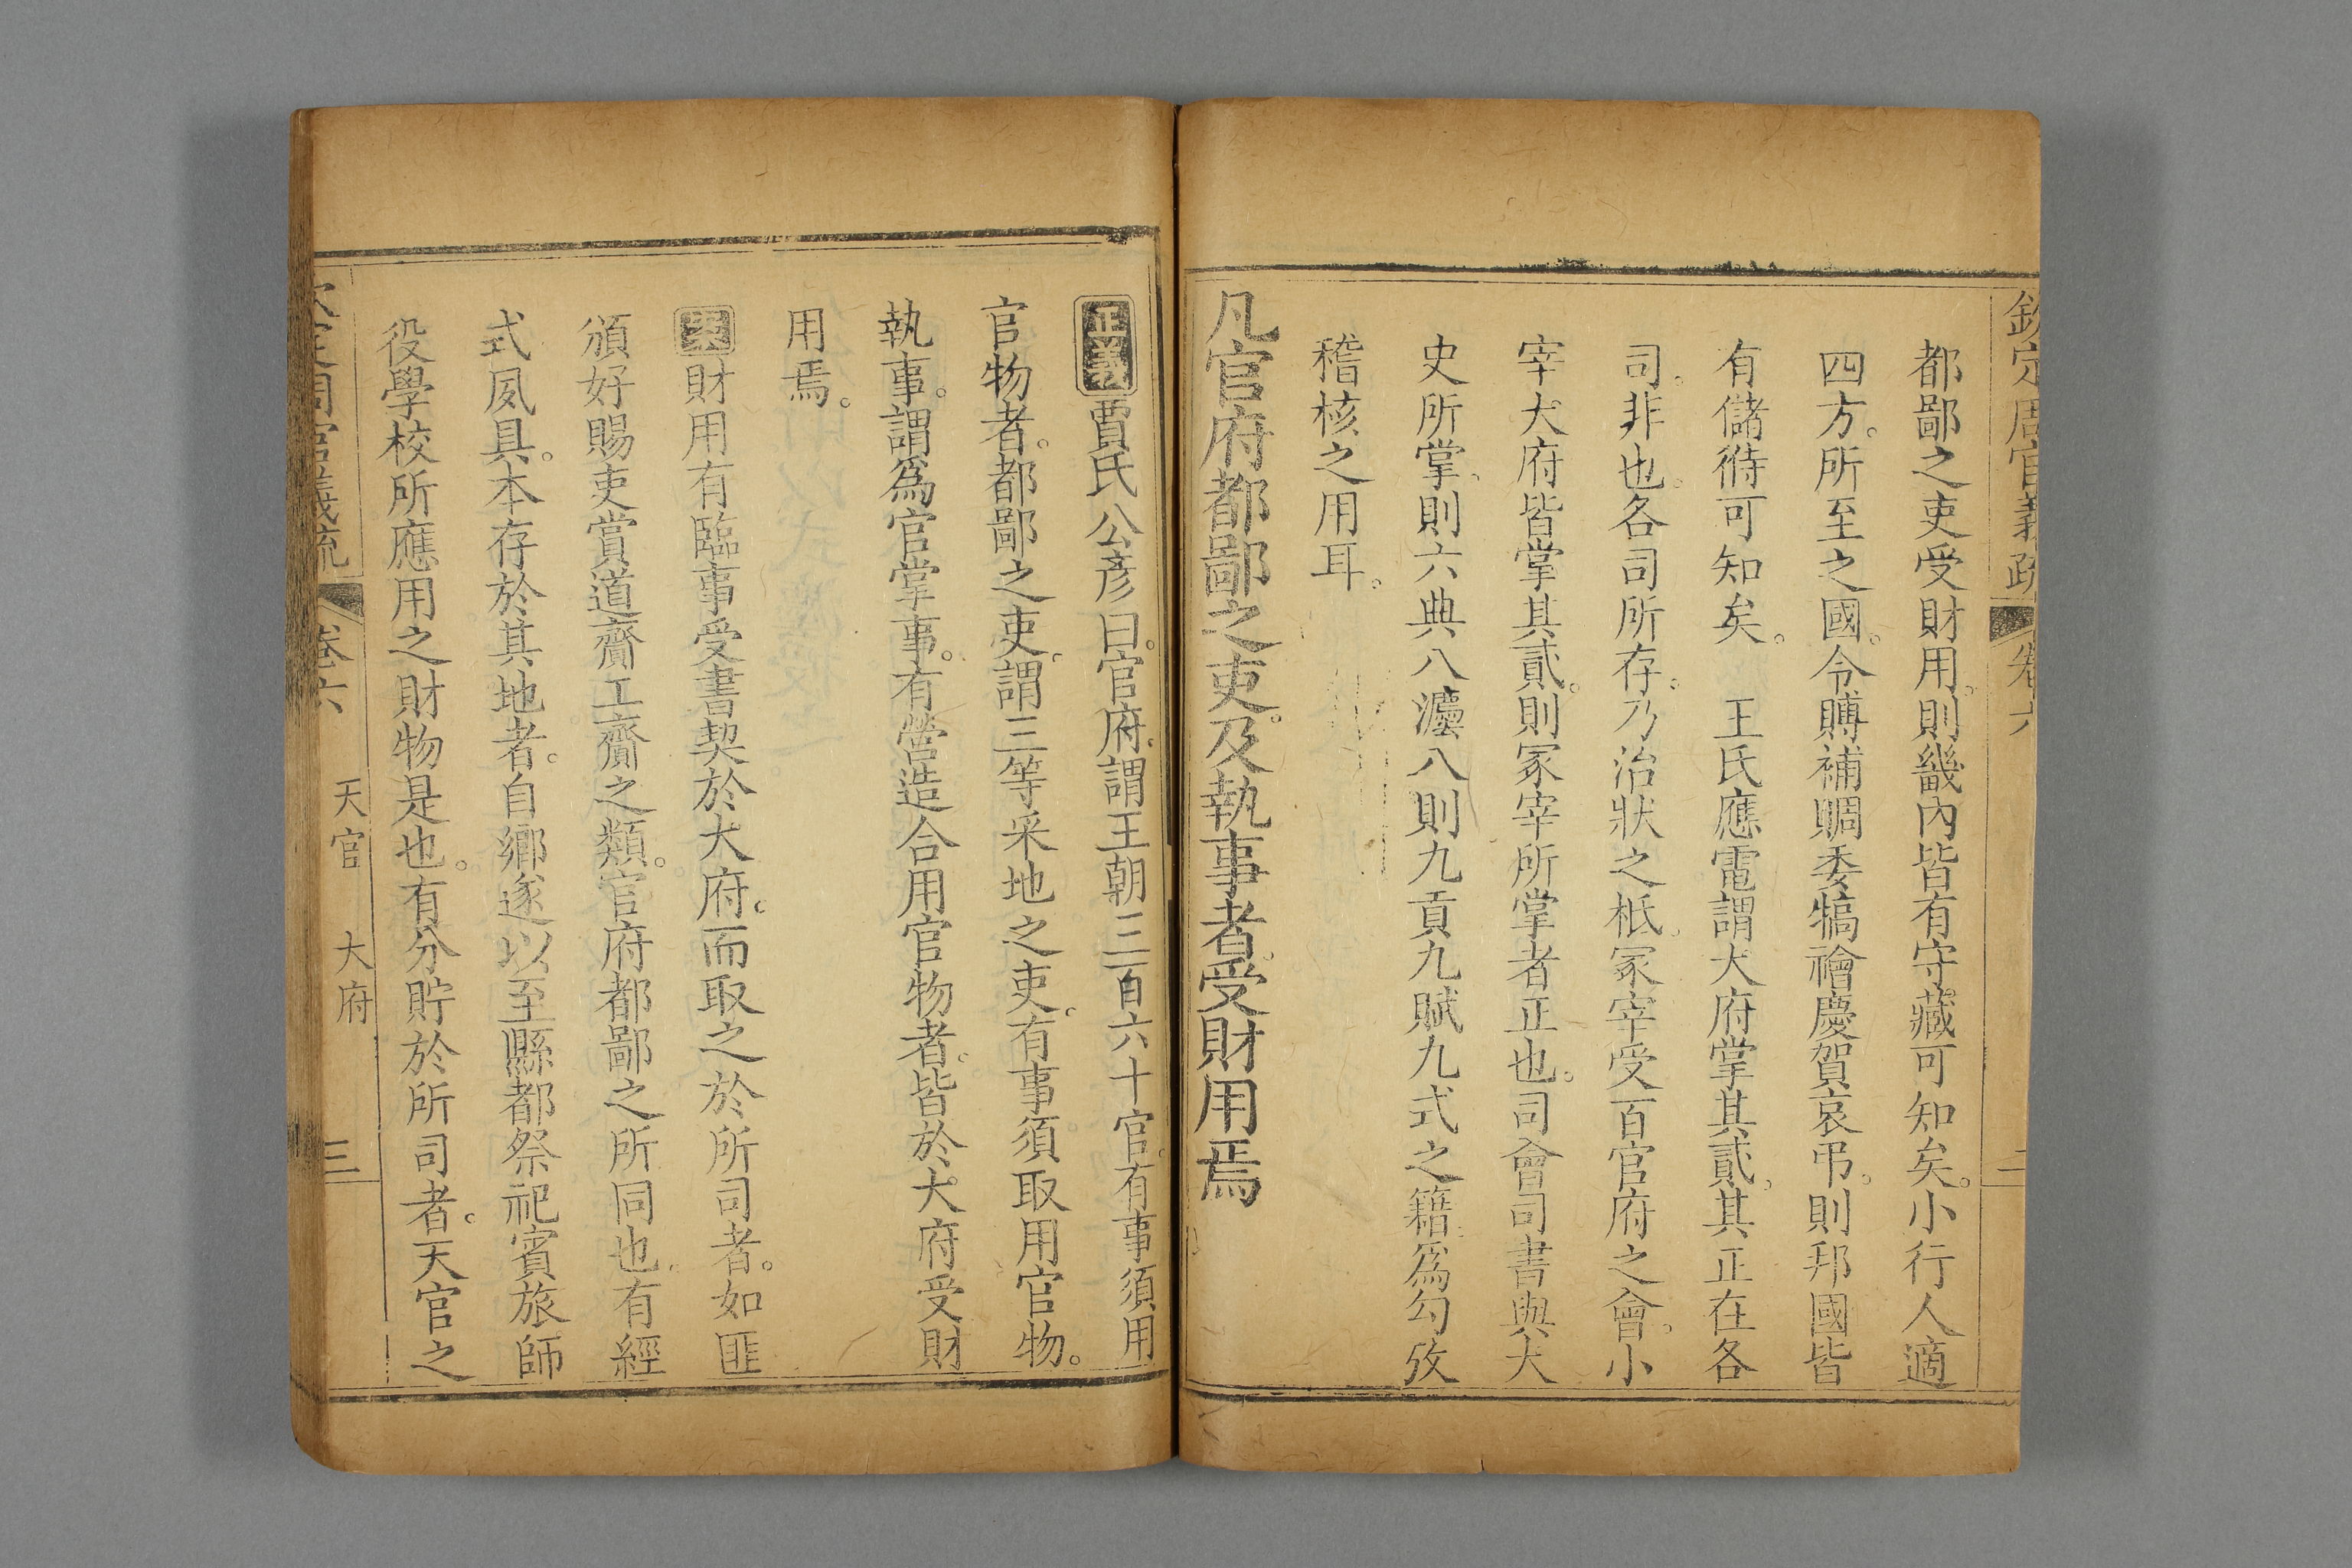 欽定周官義疏 卷六 二
都鄙之吏受財用。則畿內皆有守藏可知矣。小行人適
四方。所至之國。令賻補賙委犒禬慶賀哀弔。則邦國皆
有儲偫可知矣。 王氏應電謂大府掌其貳。其正在各
司。非也。各司所存。乃治狀之柢。冢宰受百官府之會。小
宰大府皆掌其貳。則冢宰所掌者正也。司會司書與大
史所掌。則六典八灋八則九貢九賦九式之籍。爲勾攷
稽核之用耳。
凡官府都鄙之吏。及執事者。受財用焉
正義賈氏公彥曰。官府。謂王朝三百六十官。有事須用
官物者。都鄙之吏。謂三等采地之吏。有事須取用官物。
執事。謂爲官掌事。有營造合用官物者。皆於大府受財
用焉。
案財用有臨事受書契於大府。而取之於所司者。如匪
頒好賜吏賞道齎工齎之類。官府都鄙之所同也。有經
式夙具。本存於其地者。自鄉遂以至縣都祭祀賓旅師
役學校所應用之財物是也。有分貯於所司者。天官之
欽定周官義疏 卷六 天官 大府 三